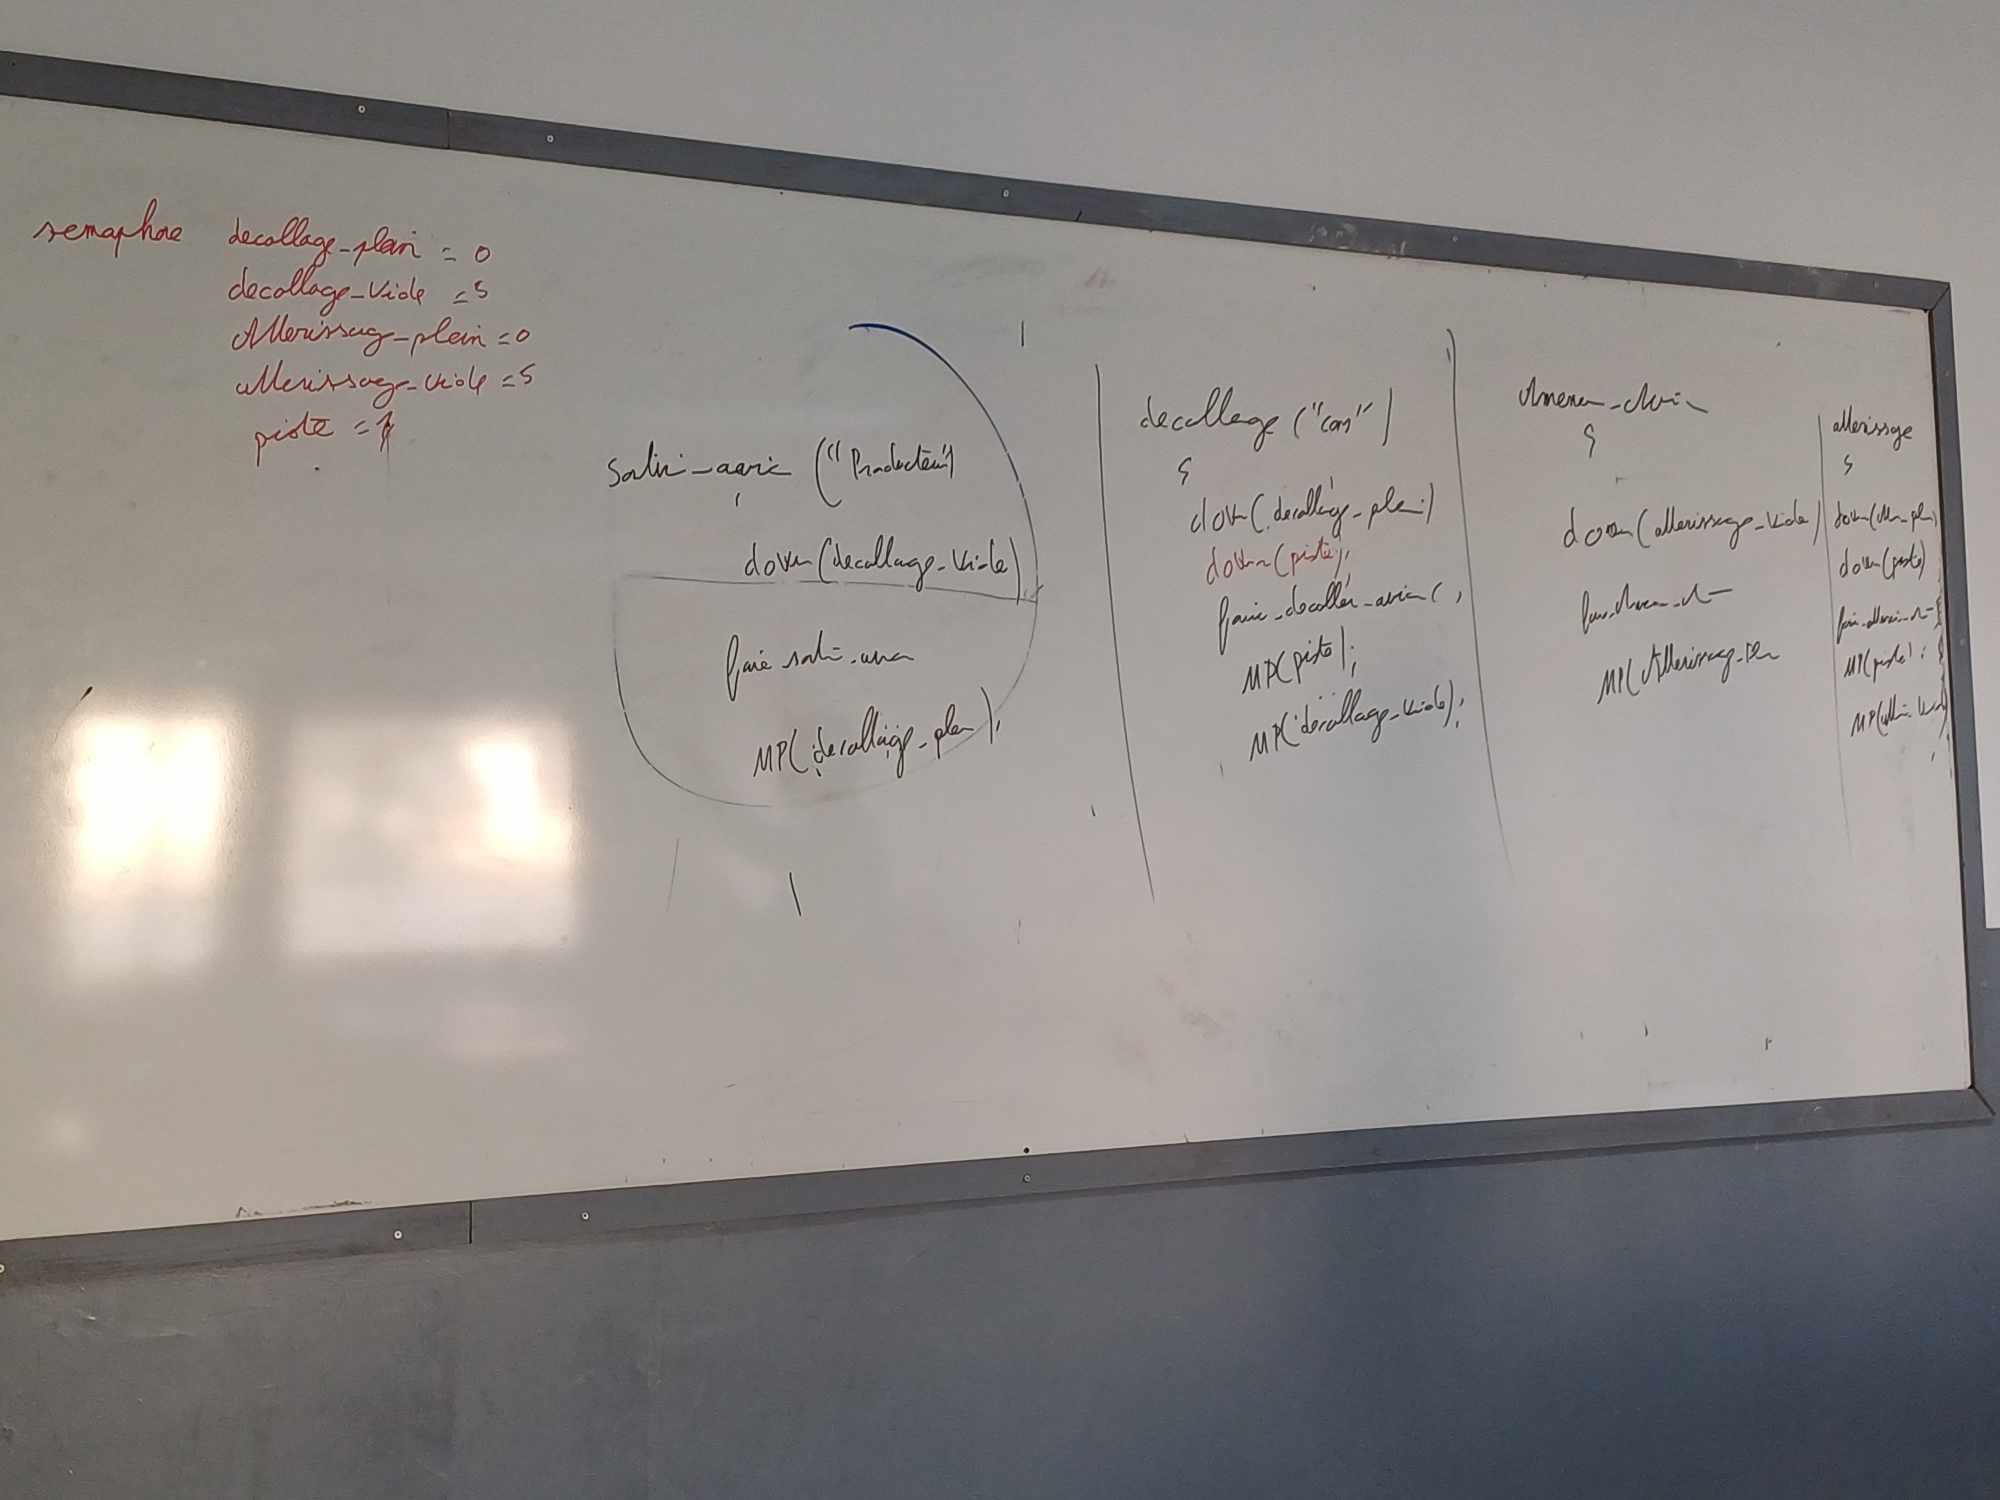 semaphore decollage_plein = 0
decollage_vide = 5
Atterissag_plein = 0
atterissage_vide = 5
piste = 1
sortir_avion ("Producteur")
down(decollage_vide)
faire_sortir_avion
MP(decollage_plein);
decollage ("con")
{
down(decollage_plein)
down(piste);
faire_decoller_avion( ;
MP(piste);
MP(decollage_vide);
Amener_Avion
{
down(atterissage_vide)
MP(Atterissag_
atterissage
{
down(Att_plein)
down(piste)
MP(piste);